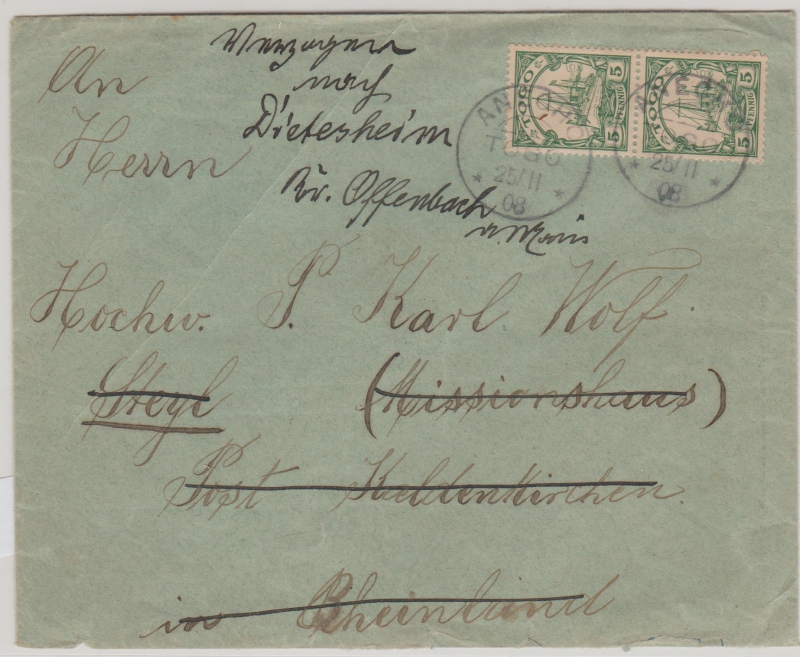 An
Herrn
Verzogen
nach
Dietesheim
Kr. Offenbach
a. Main
TOGO
5
5
PFENNIG
TOGO
5
5
PFENNIG
TOGO
* 25/11 *
08
ANECHO
25/11 *
08
Hochw. P. Karl Wolf
Steyl (Missionshaus)
Post Kaldenkirchen.
in Rheinland